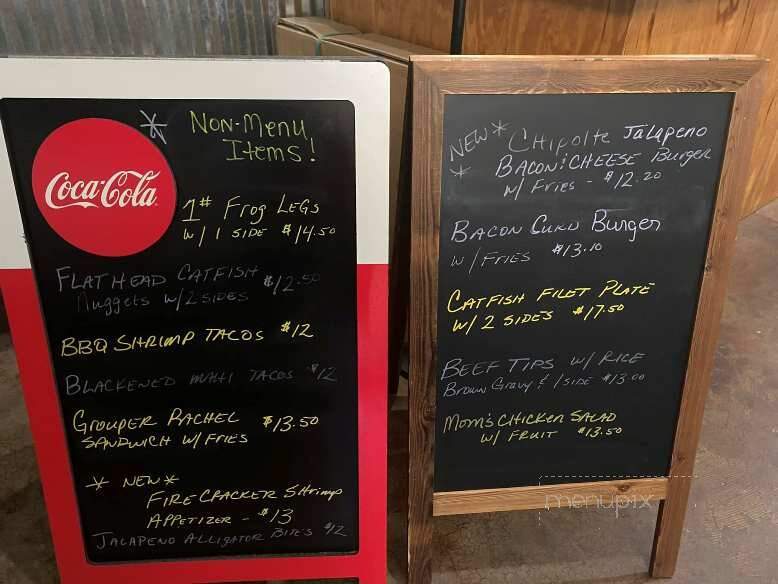 Non-Menu
Items!
Coca-Cola
1# Frog Legs
w/ 1 SIDE $14.50
FLATHEAD CATFISH
Nuggets w/ 2 SIDES $12.50
BBQ SHRIMP TACOS $12
BLACKENED MAHI TACOS $12
GROUPER RACHEL
SANDWICH W/ FRIES $13.50
* NEW *
FIRECRACKER SHrimp
APPETIZER - $13
JALAPENO ALLIGATOR BITES $12
NEW * CHIPOLTE JALAPENO
* BACON & CHEESE Burger
w/ Fries - $12.20
BACON Burger
w/ FRIES $13.10
CATFISH FILET PLATE
w/ 2 SIDES $17.50
BEEF TIPS w/ RICE
Brown Gravy & 1 SIDE $13.00
Mom's CHICKEN SALAD
w/ FRUIT $13.50
menupix